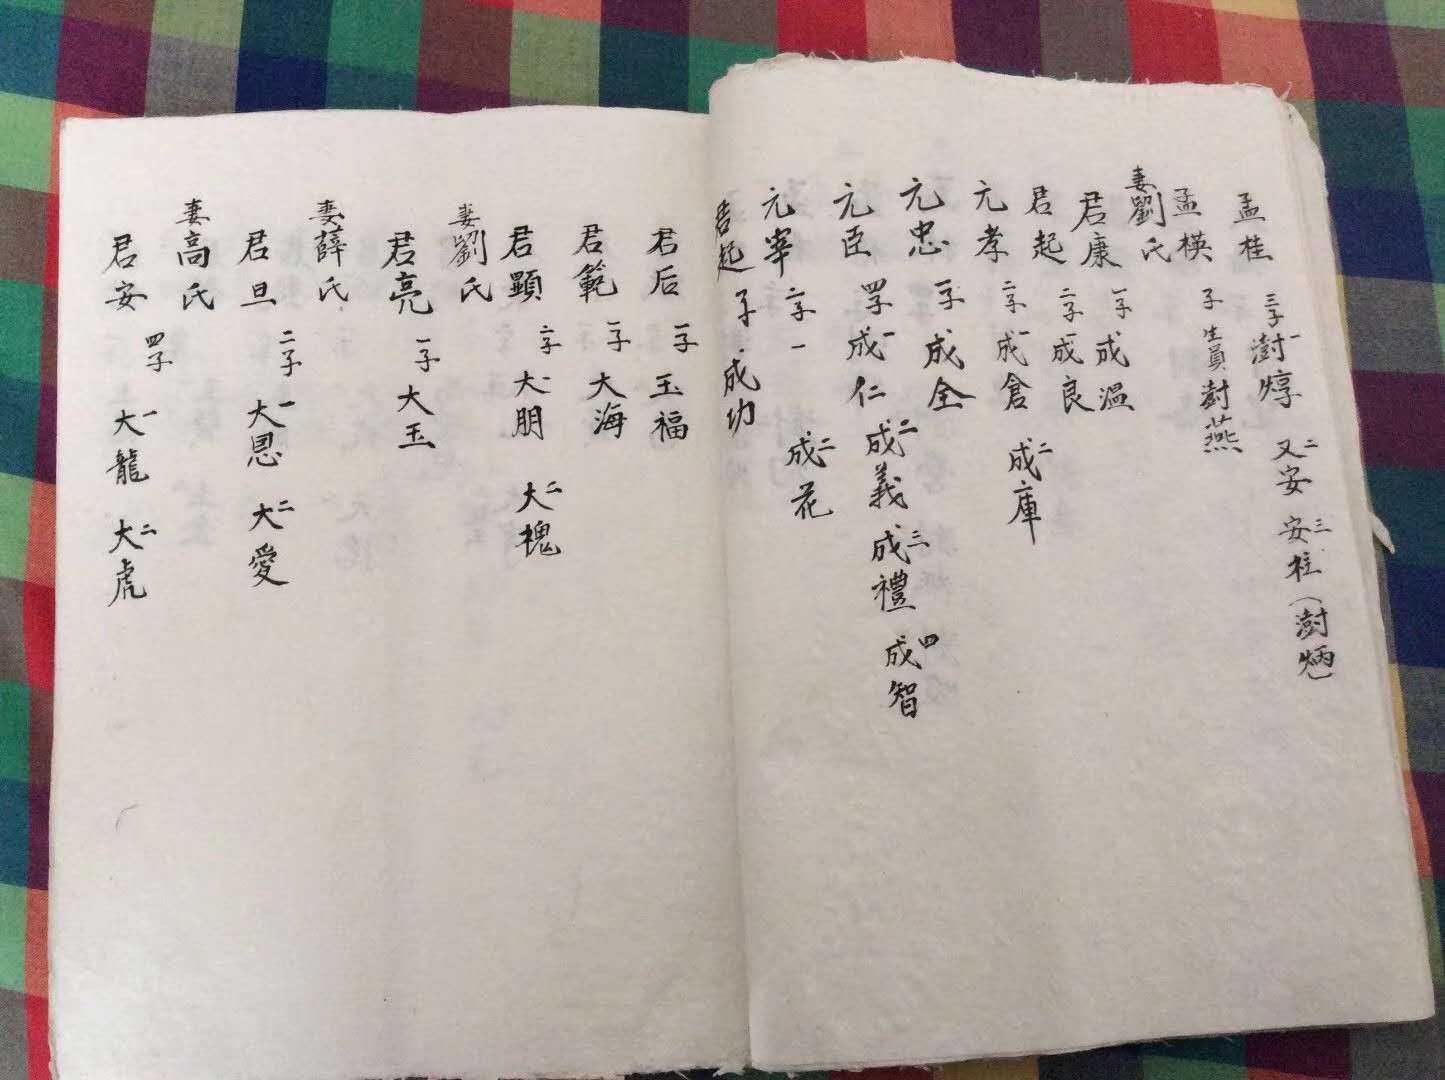 孟桂 三子 一澍焞 二又安 三安柱（澍炳）
孟楧 子 生員 澍燕
妻劉氏
君康 一子 成溫
君起 二子 一成良
元孝 二子 一成倉 二成庫
元忠 一子 成全
元臣 四子 一成仁 二成義 三成禮 四成智
元宰 二子 一 二成花
君起 子 成功
君后 一子 玉福
君範 一子 大海
君顯 二子 大朋 二大槐
妻劉氏
君亮 一子 大玉
妻薛氏
君旦 二子 一大恩 二大愛
妻高氏
君安 四子 一大龍 二大虎